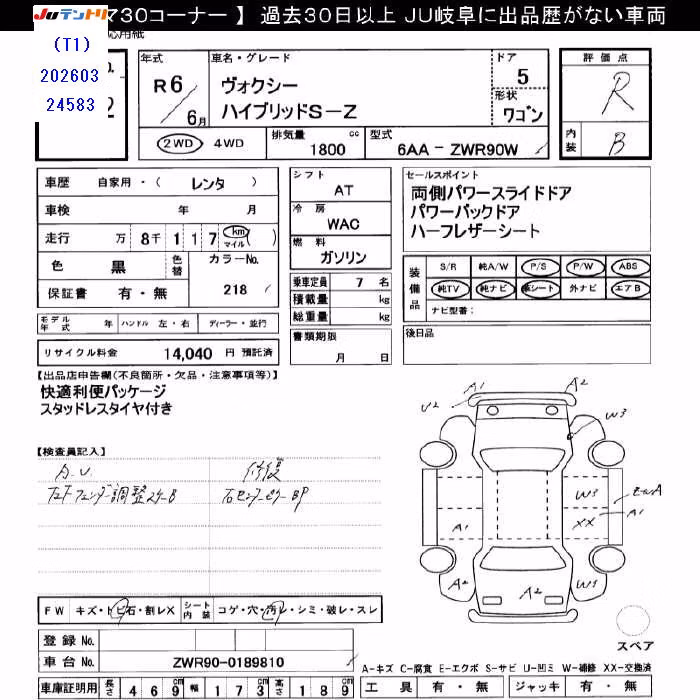 JUテントリ 730コーナー 】 過去30日以上 JU岐阜に出品歴がない車両
応用紙
(T1)
202603
24583
No.
2
年式 車名・グレード ドア 評価点
R6/6月 ヴォクシー 5 R
ハイブリッドS-Z 形状 ワゴン
2WD 4WD 排気量 1800 cc 型式 6AA-ZWR90W 内装 B
車歴 自家用・( レンタ )
車検 年 月
走行 万 8千 1 1 7 km マイル ( )
色 黒 色替 カラーNo.
保証書 有・無 218
モデル年式 年 ハンドル 左・右 ディーラー・並行
リサイクル料金 14,040 円 預託済
シフト AT
冷房 WAC
燃料 ガソリン
乗車定員 7 名
積載量 kg
総重量 kg
書類期限
月 日
セールスポイント
両側パワースライドドア
パワーバックドア
ハーフレザーシート
装備品 S/R 純A/W P/S P/W ABS
純TV 純ナビ 革シート 外ナビ エアB
ナビ型番:
後日品
【出品店申告欄(不良箇所・欠品・注意事項等)】
快適利便パッケージ
スタッドレスタイヤ付き
【検査員記入】
A.U. 修復
調整 右センターピラーBP
FW キズ・トビ石・割レX シート内装 コゲ・穴・汚レ・シミ・破レ・スレ
登録 No.
車台 No. ZWR90-0189810
車庫証明用 長さ 469cm 幅 173cm 高さ 189cm
A1 A2
U2 W3
W3 A1
A1 XX
A2 A2 W1
スペア
A-キズ C-腐食 E-エクボ S-サビ U-凹ミ W-補修 XX-交換済
工具 有・無 ジャッキ 有・無